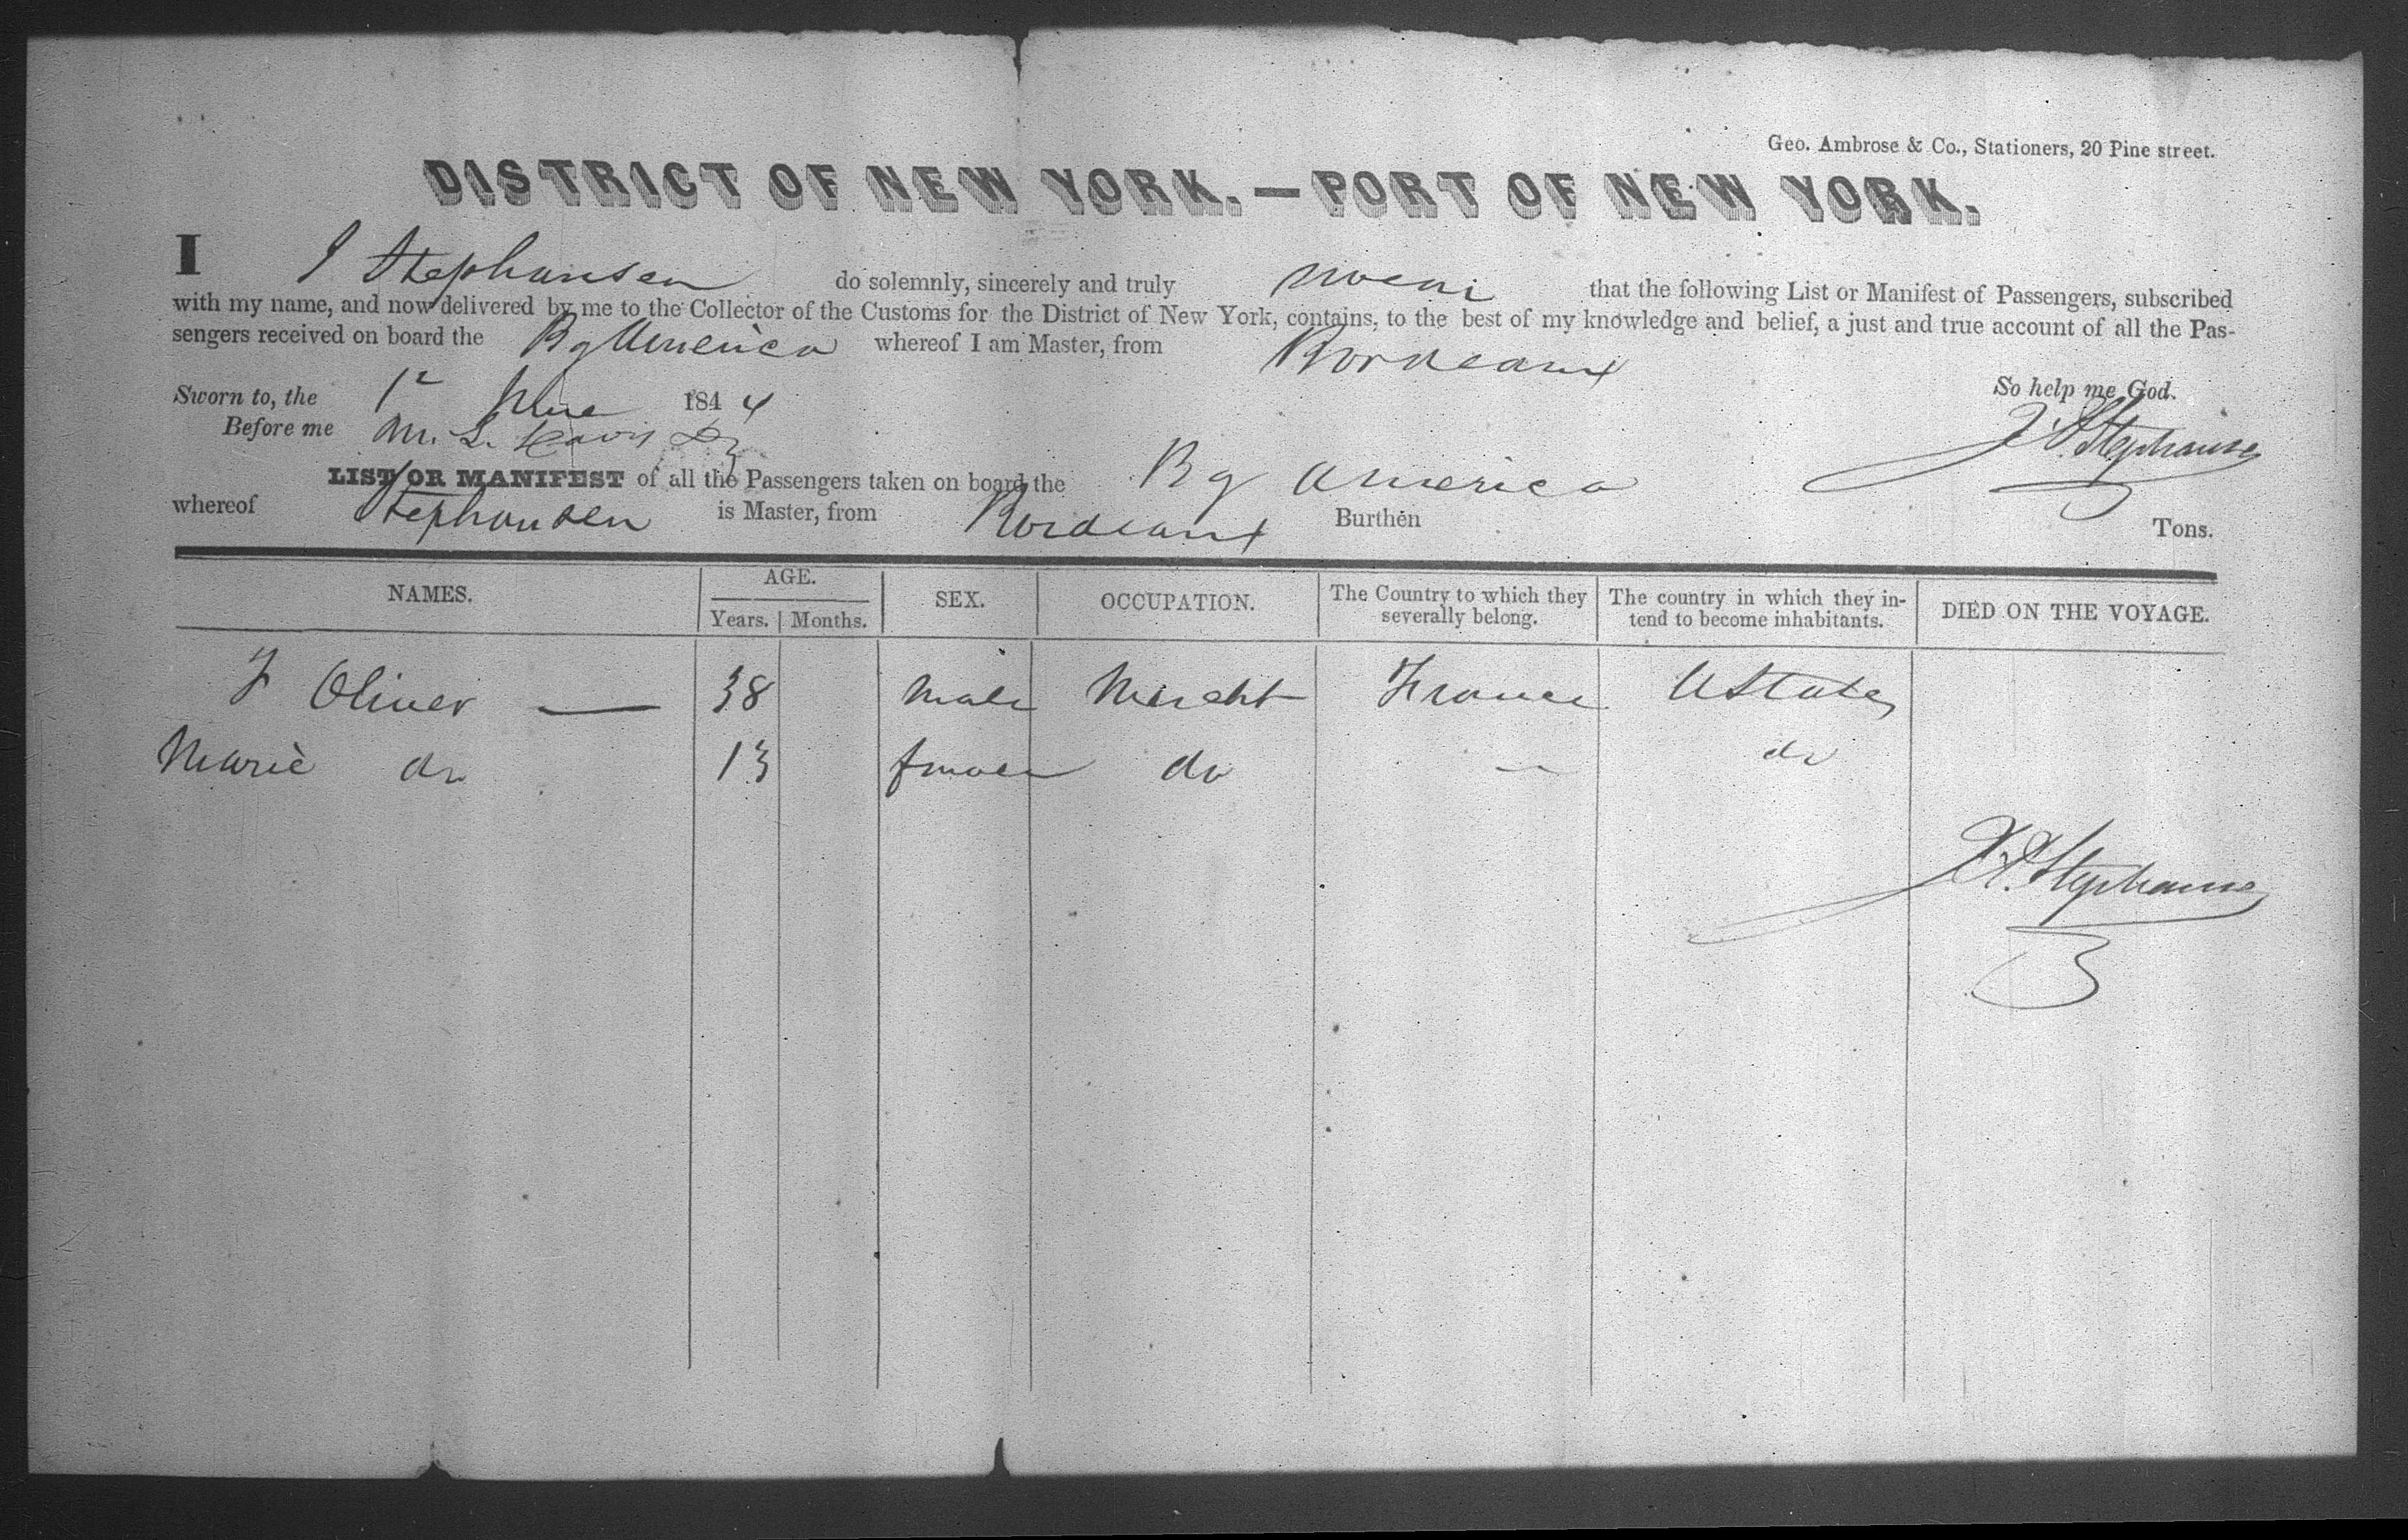 Geo. Ambrose & Co., Stationers, 20 Pine street.
DISTRICT OF NEW YORK.—PORT OF NEW YORK.
I J Stephansen do solemnly, sincerely and truly swear that the following List or Manifest of Passengers, subscribed
with my name, and now delivered by me to the Collector of the Customs for the District of New York, contains, to the best of my knowledge and belief, a just and true account of all the Pas-
sengers received on board the Bg America whereof I am Master, from Bordeaux
Sworn to, the 1st June 1844 So help me God.
Before me M. L. Davis J. Stephansen
LIST OR MANIFEST of all the Passengers taken on board the Bg America
whereof Stephansen is Master, from Bordeaux Burthen Tons.
NAMES. AGE. Years. Months. SEX. OCCUPATION. The Country to which they severally belong. The country in which they intend to become inhabitants. DIED ON THE VOYAGE.
F Oliver — 38 Male Mercht France UStates
Marie do 13 female do — do
Stephansen